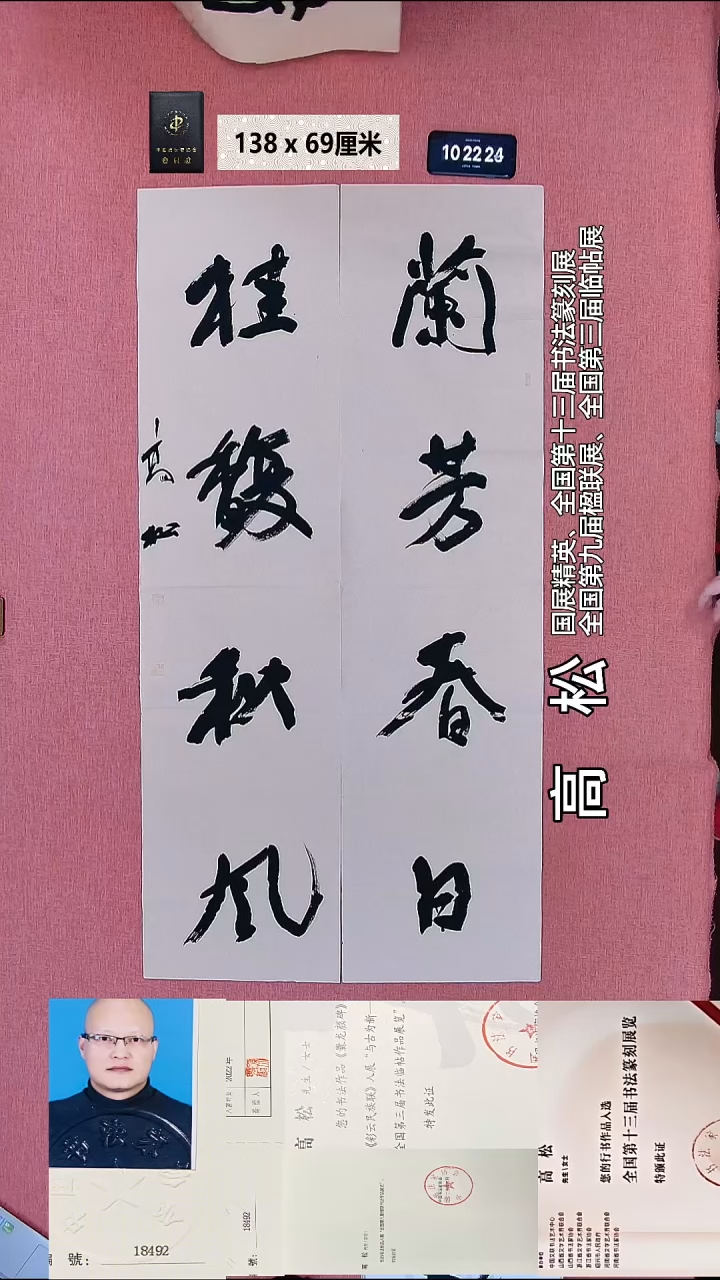 138 x 69厘米
10 22 24
蘭芳春日
桂馥秋風
高松
国展精英、全国第十三届书法篆刻展
全国第九届楹联展、全国第三届临帖展
高 松
2022年
高 松 先生/女士
您的书法作品《爨龙颜碑》
《彩云民族联》入展“与古为新——
全国第三届书法临帖作品展览”
特发此证
18492
號：
18492
號：
高 松
先生\女士
您的行书作品入选
全国第十三届书法篆刻展览
特颁此证